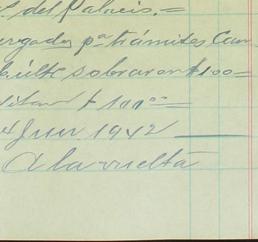 del Palacio.=
ergados pª trámites Can
últ sobraron $100=
$ 100⁰⁰=
4 Jun. 1942
A la vuelta